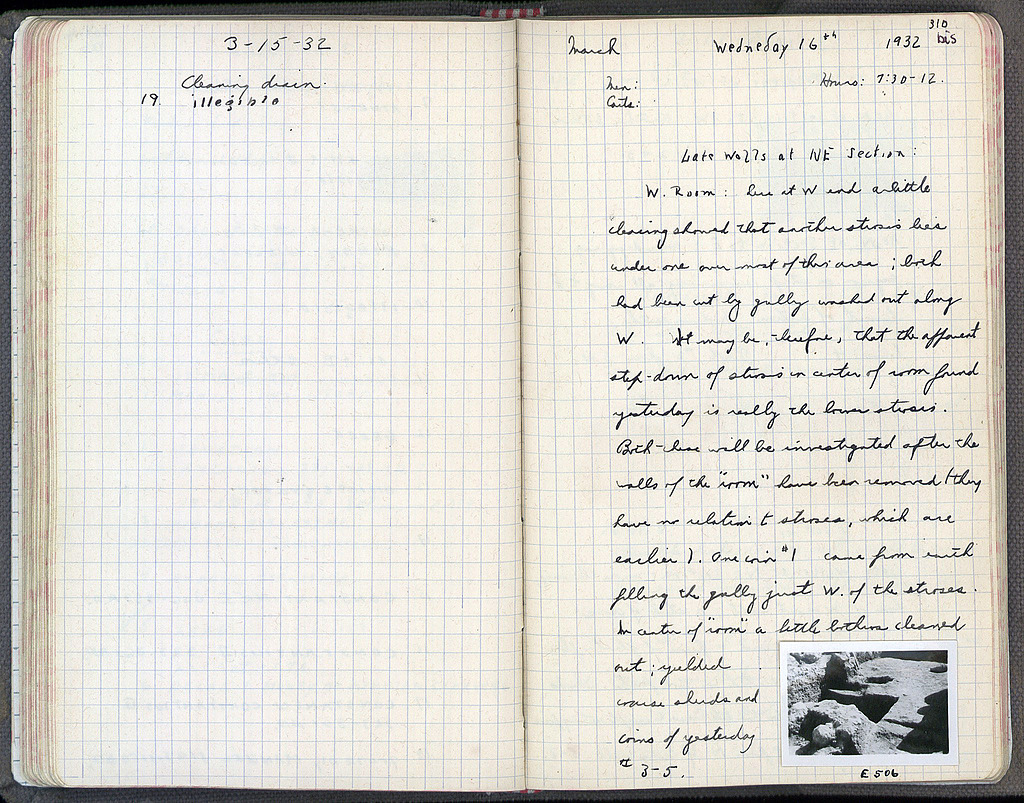 3-15-32
Cleaning drain.
19. illegible
310
bis
March Wednesday 16th 1932
Men: Hours: 7:30-12.
Carts:
Late Walls at NE Section:
W. Room: Here at W end a little
clearing showed that another strosis lies
under one over most of this area; both
had been cut by gully washed out along
W. It may be, therefore, that the apparent
step-down of strosis in center of room found
yesterday is really the lower strosis.
Both these will be investigated after the
walls of the "room" have been removed (they
have no relation to stroses, which are
earlier). One coin #1 came from earth
filling the gully just W. of the stroses.
In center of "room" a little bothros cleaned
out; yielded
coarse sherds and
coins of yesterday
# 3-5.
E 506